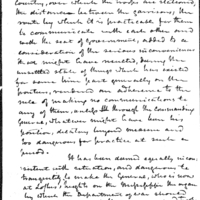 Country, over which the troops are scattered,
the distance between the garrisons, the
route by which it is practicable for them
to communicate with each other and
with the seat of government, added to a
consideration of the serious inconvenience
that might have resulted, during the
unsettled state of things which has existed
for some time past generally on the
rendered an adherence to the
rule of making no communications to
any of them, unless through the Commanding
General, whatever might have been his
position, dilatory beyond measure and
too dangerous for practice at such a
period.
It has been deemed equally in con-
sistent with retention, and dangerous to
to make the General, who is now
at on the Mississippi an organ
by which the Department of war should